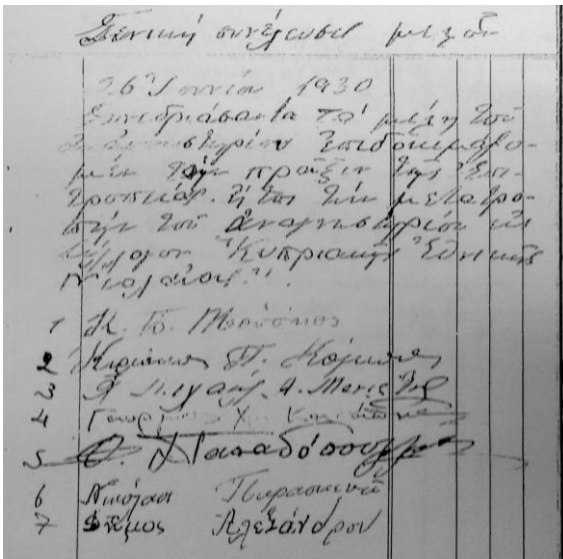 Γενική συνέλευσις μελῶν
26 Ἰουνίου 1930
Συνεδριάσαντα τα' μέλη τοῦ
Ἀναγνωστηρίου ἐπιδοκιμάζο-
μεν τὴν πρᾶξιν τῆς Ἐπι-
τροπείας. ἤτοι τὴν μετατρο-
πὴν τοῦ ἀναγνωστηρίου εἰς
σύλλογον "Κυπριακῆς Ἐθνικῆς
Νεολαίας".
1 Κ. Γ.
2 Κυριάκος Π.
3 Μιχαὴλ. Α.
4 Γεώργιος Χ"
5 Παπαδόπουλος
6 Νικόλαος Παρασκευᾶ
7 Δῆμος Ἀλεξάνδρου